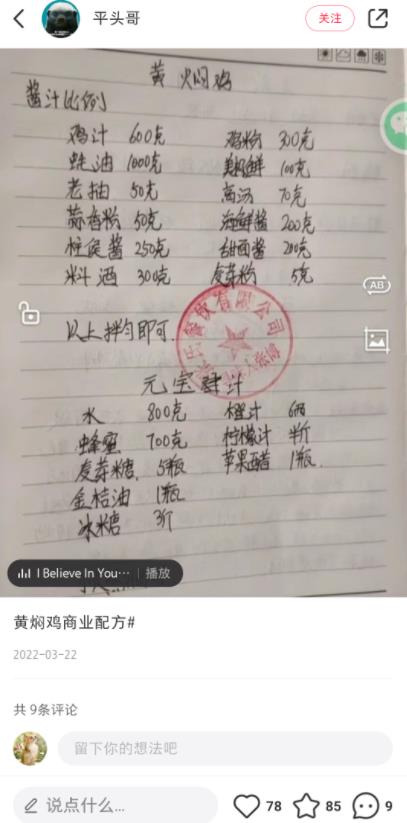 平头哥
关注
黄焖鸡
酱汁比例
鸡汁 600克 鸡粉 300克
蚝油 1000克 100克
老抽 50克 高汤 70克
蒜香粉 50克 海鲜酱 200克
柱侯酱 250克 甜面酱 200克
料酒 300克 麦芽粉 5克
以上拌匀即可.
餐饮有限公司
元宝肆汁
水 800克 橙汁 6瓶
蜂蜜 700克 柠檬汁 半斤
麦芽糖. 5瓶 苹果醋 1瓶.
金桔油 1瓶
冰糖 3斤
AB
I Believe In You… | 播放
黄焖鸡商业配方#
2022-03-22
共 9条评论
留下你的想法吧
说点什么... 78 85 9